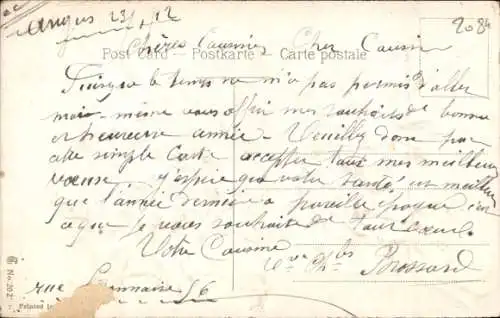 Angers 23/1/12
2084
Chères Cousines Cher Cousin
Post Card - Postkarte - Carte postale
Puisque le temps ne m'a pas permis d'aller
moi-même vous offrir mes souhaits de bonne
et heureuse année. Veuillez donc par
cette simple Carte accepter tous mes meilleurs
vœux. j'espère que votre santé est meilleure
que l'année dernière a pareille époque c'est
ce que je vous souhaite de tout cœur.
Votre Cousine
Vve Chles Brossard
rue 56
No. 202
Printed in